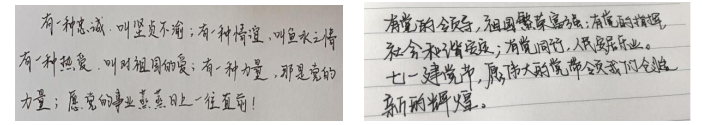 有一种忠诚，叫坚贞不渝；有一种情谊，叫鱼水之情
有一种热爱，叫对祖国的爱；有一种力量，那是党的
力量；愿党的事业蒸蒸日上一往直前！
有党的领导，祖国繁荣富强；有党的指挥
社会和谐安定；有党同行，人民安居乐业。
七一建党节，愿伟大的党带领我们创造
新的辉煌。